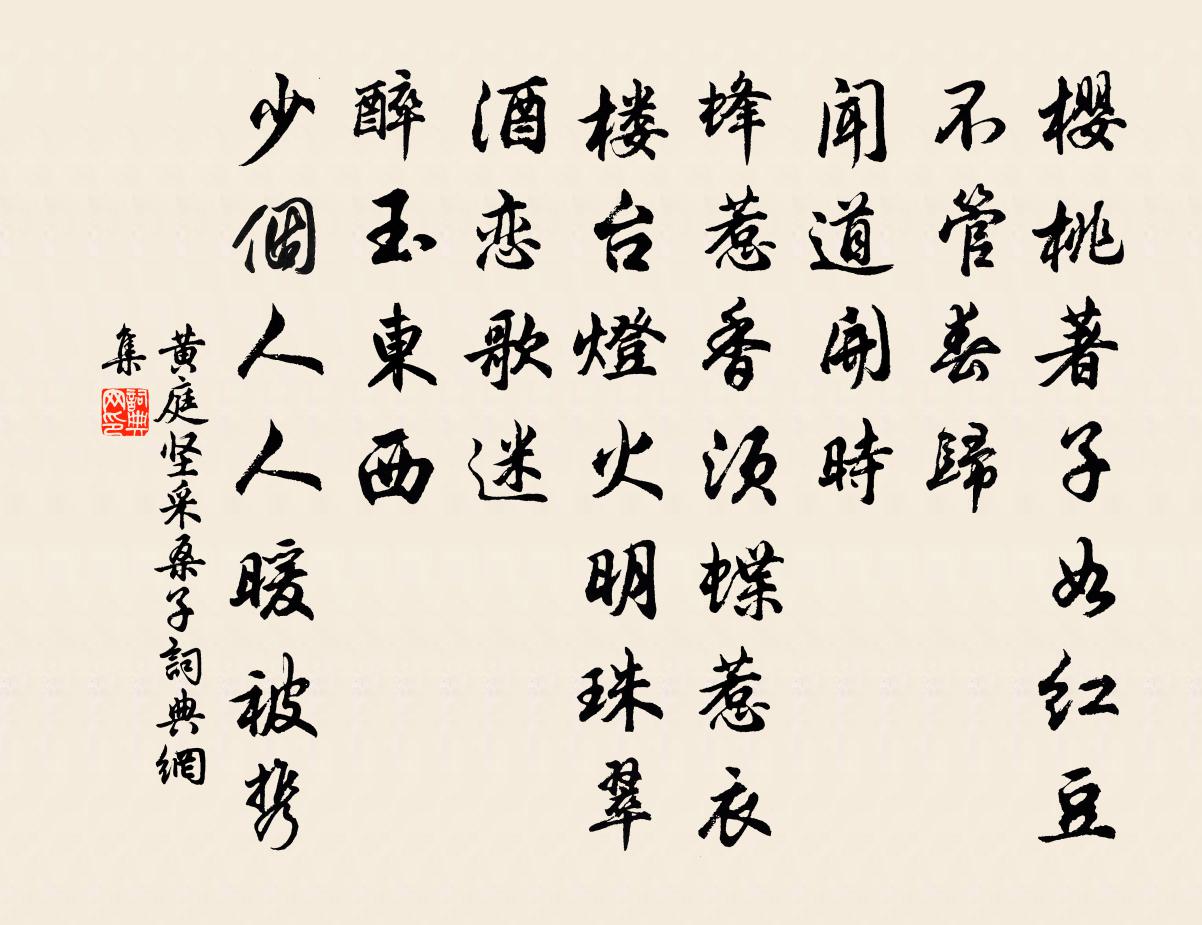 櫻桃著子如红豆
不管春歸
闻道開時
蜂惹香须蝶惹衣
楼台燈火明珠翠
酒恋歌迷
醉玉東西
少個人人暖被携
黄庭坚采桑子詞典網
集
詞典
网印